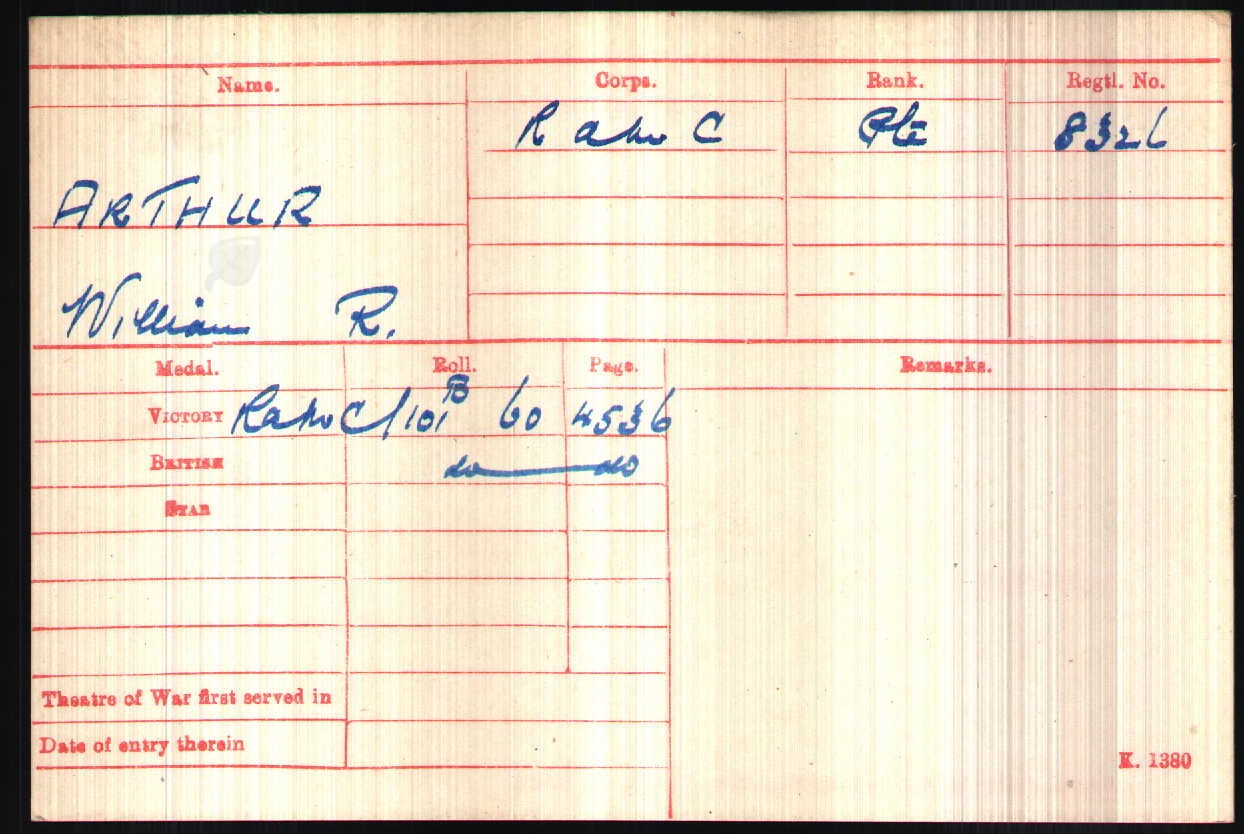 Name. Corps. Rank. Regtl. No.
R am C Pte 8326
ARTHUR
William R.
Medal. Roll. Page. Remarks.
VICTORY Ramc/101B 60 4536
BRITISH do do
STAR
Theatre of War first served in
Date of entry therein
K. 1380